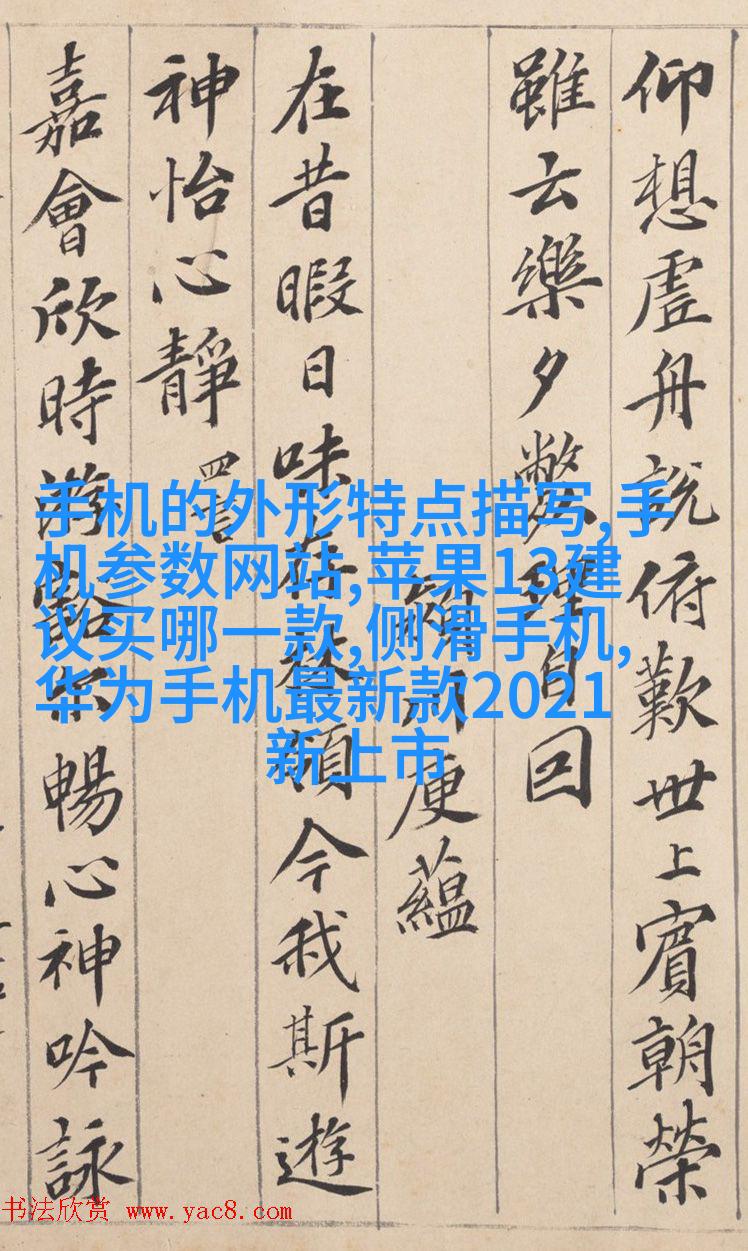 仰想虗舟說俯歎世上賓朝榮
雖云樂夕弊理自回
潁川庾蘊
在昔暇日味存林嶺今我斯遊
神怡心靜 四言
嘉會欣時游豁尒暢心神吟詠
手机的外形特点描写,手
机参数网站,苹果13建
议买哪一款,侧滑手机,
华为手机最新款2021
新上市
书法欣赏 www.yac8.com